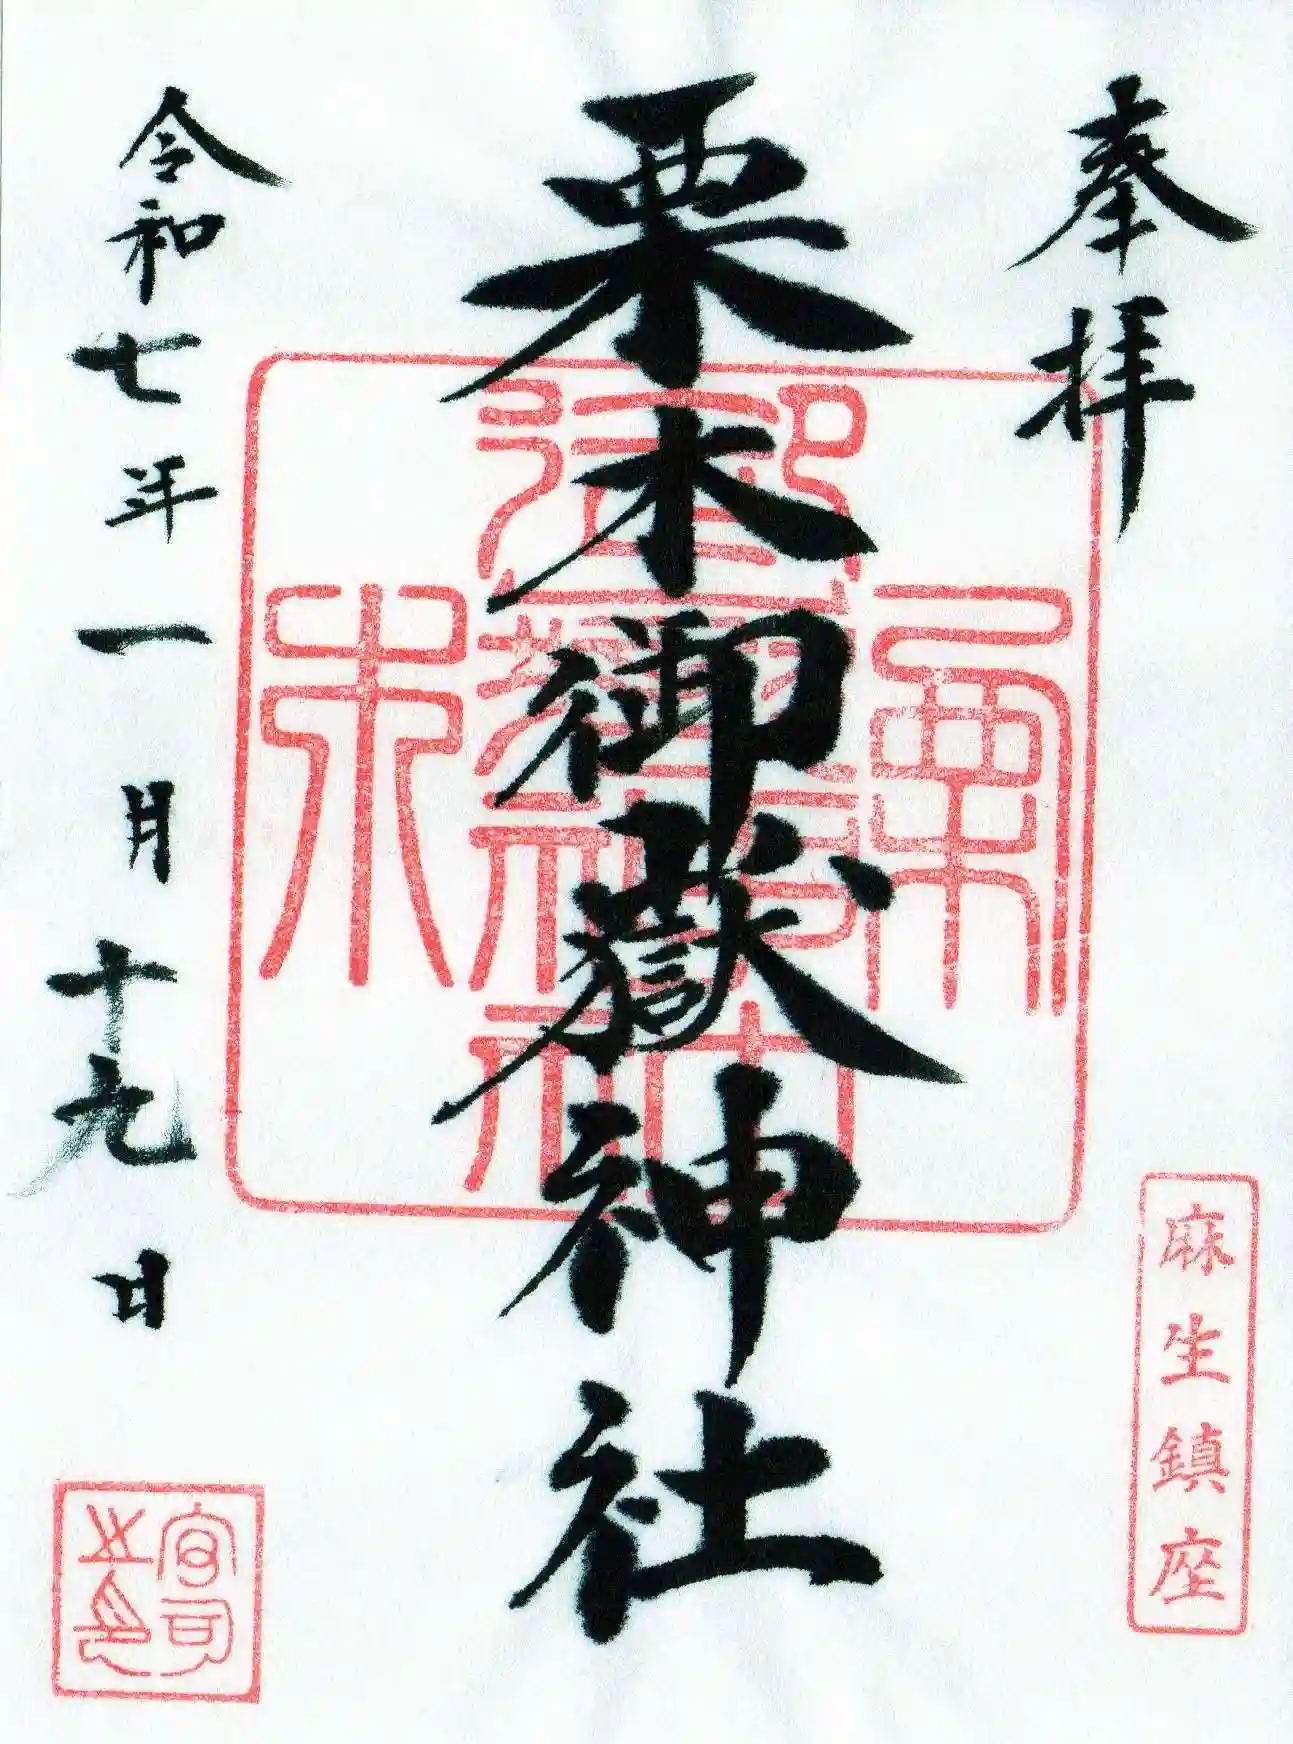 奉拝
麻生鎮座
栗木御嶽神社
令和七年一月十九日
宮司之印